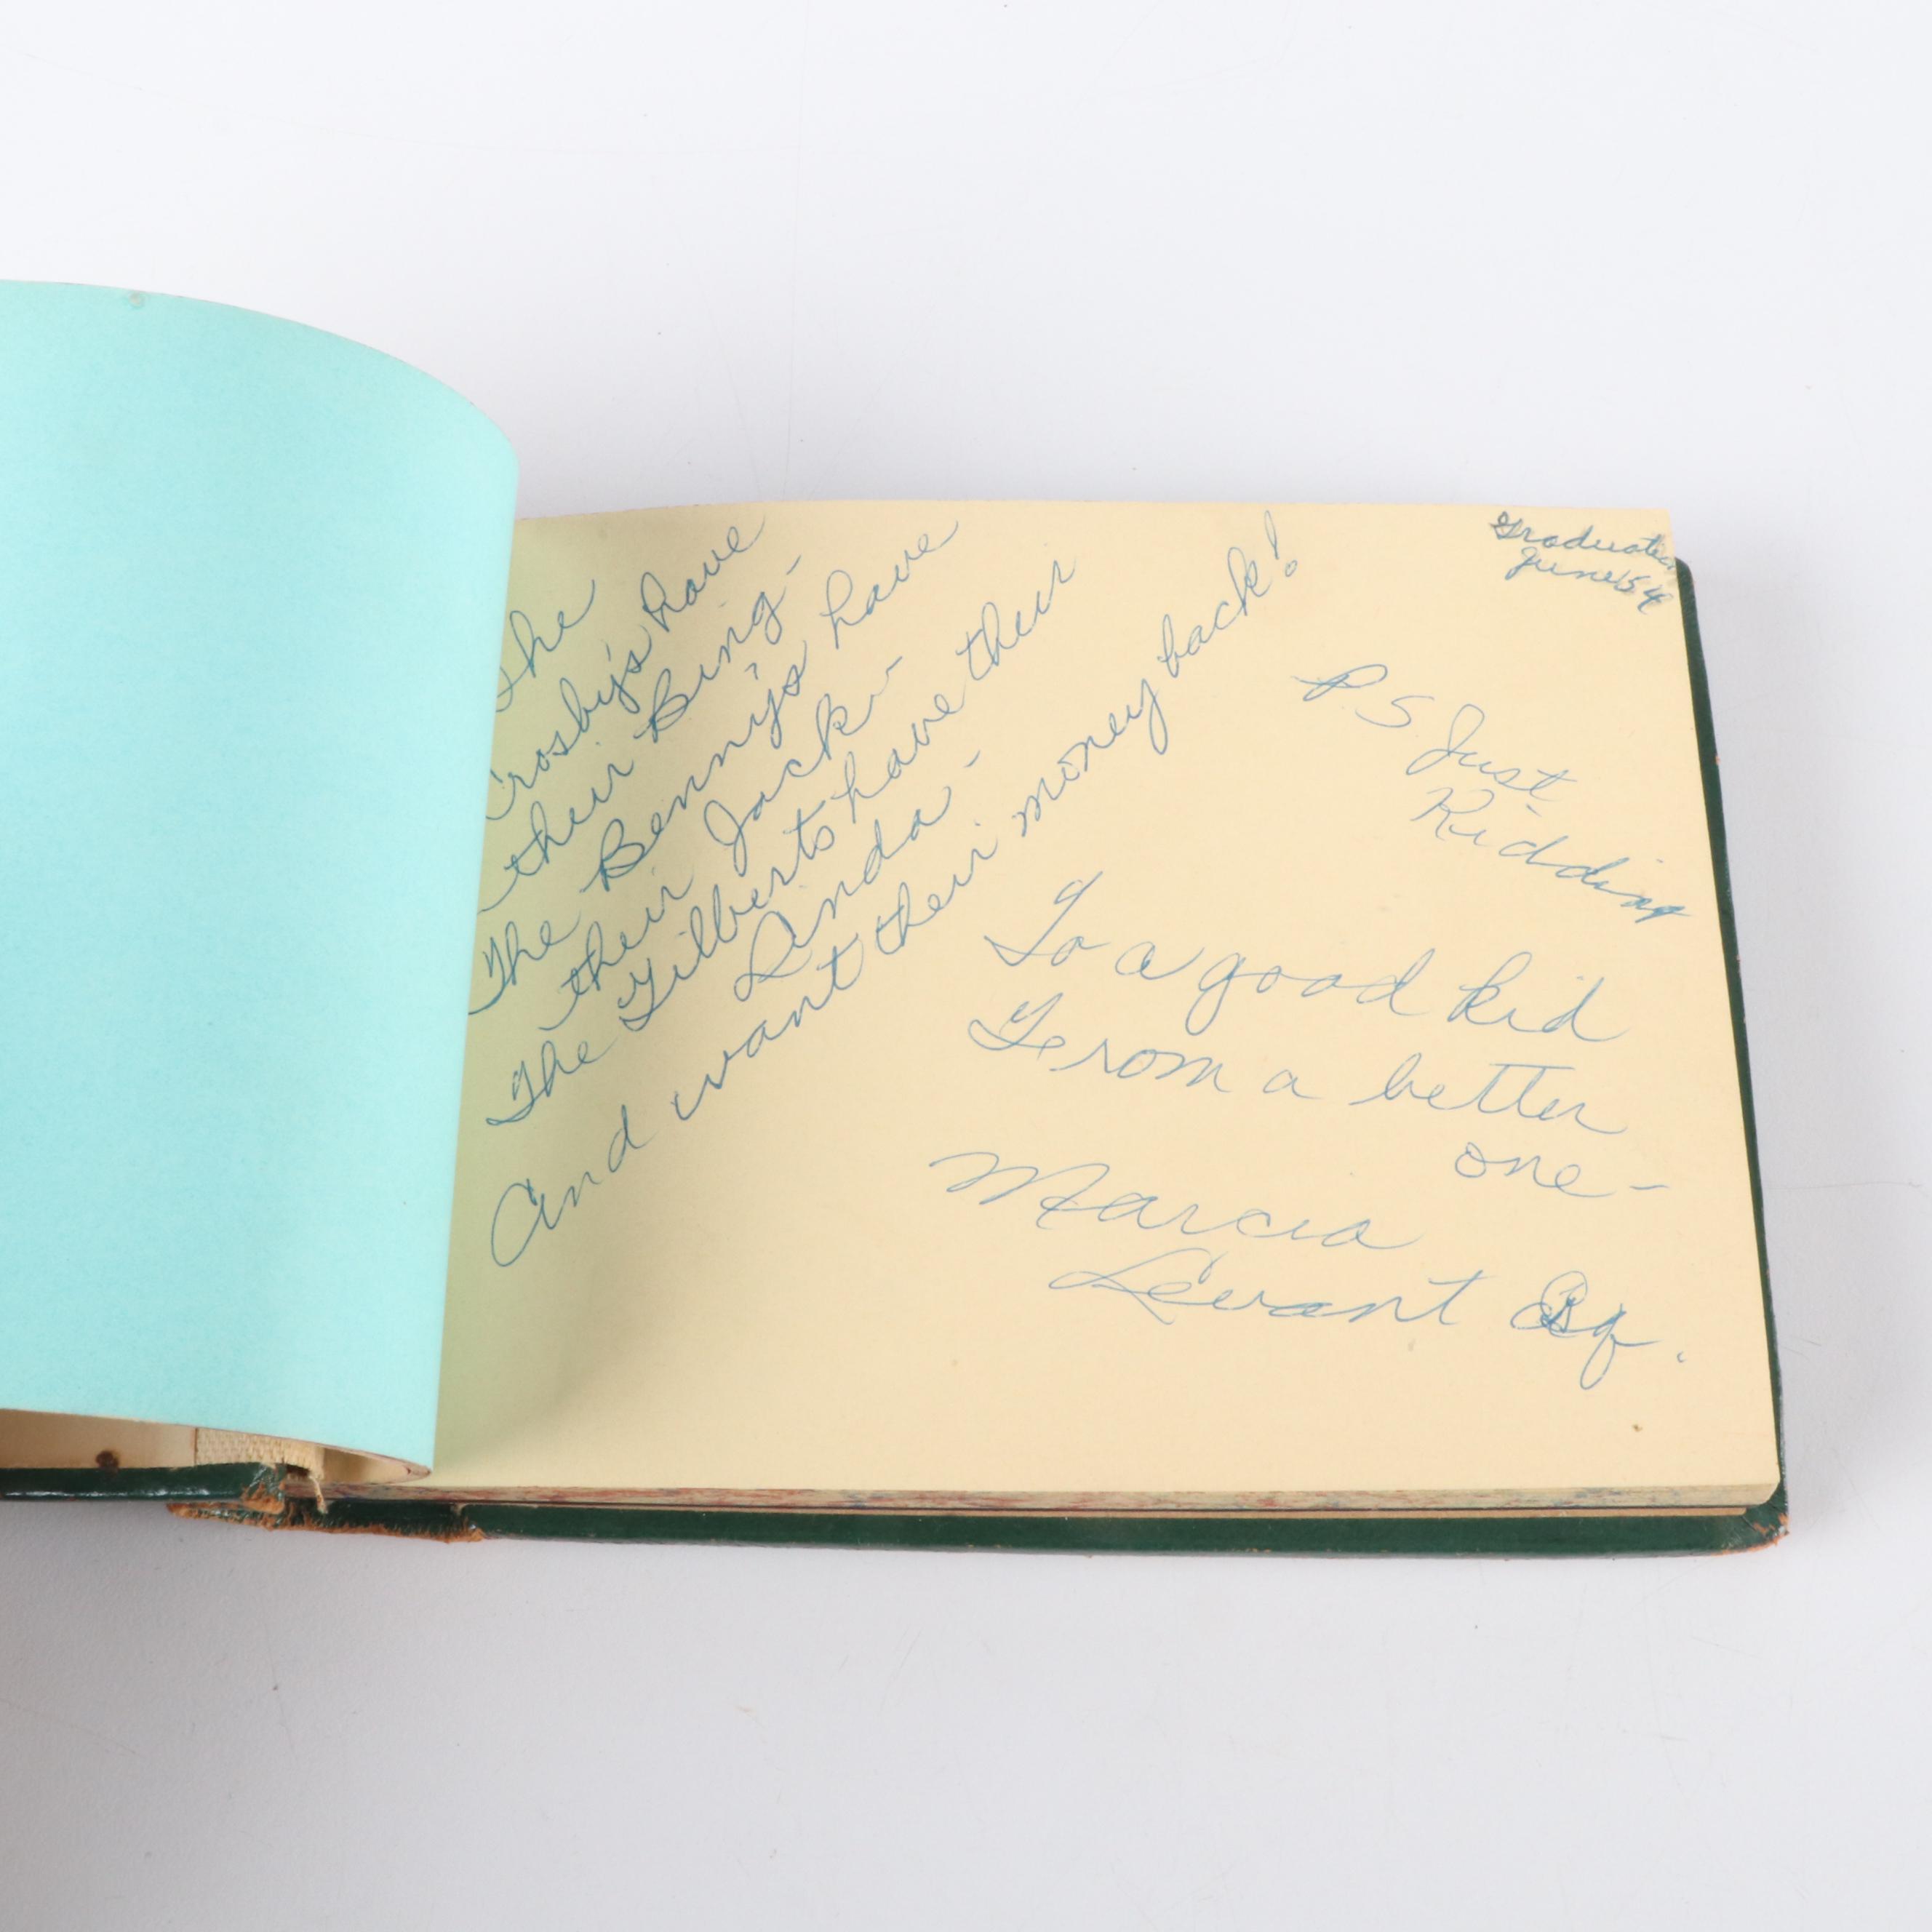 The
Crosby's have
their Bing -
The Benny's have
their Jack -
The Gilberts have their
Linda -
And want their money back!
Graduation
June '54
P.S Just
Kidding
To a good kid
From a better
one -
Marcia
Levant Esq.